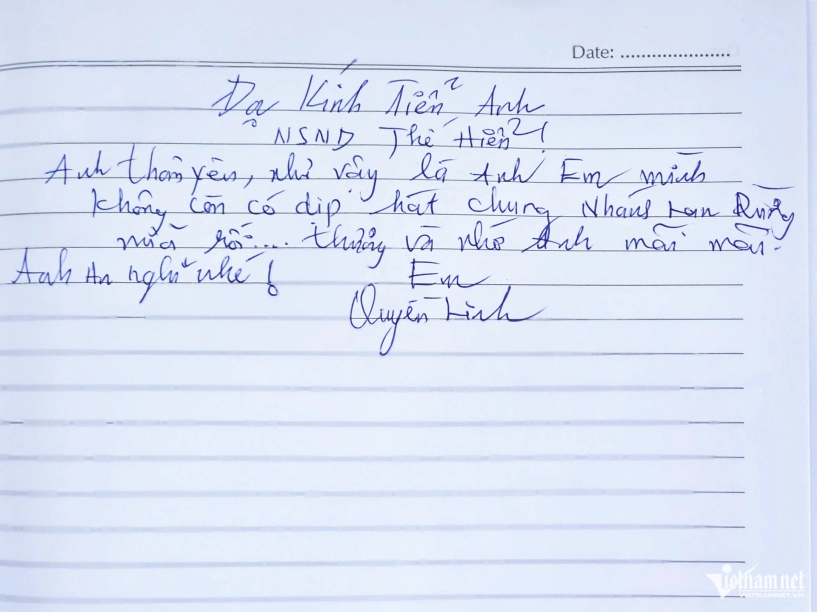 Date: ......................
Dạ Kính Tiễn Anh
NSND Thế Hiển!
Anh thân yêu, như vậy là Anh Em mình
không còn có dịp hát chung Nhánh Lan Rừng
nữa rồi.... thương và nhớ Anh mãi mãi.
Anh An nghỉ nhé!
Em
Quyền Linh
Vietnamnet
VIETNAMNET.VN